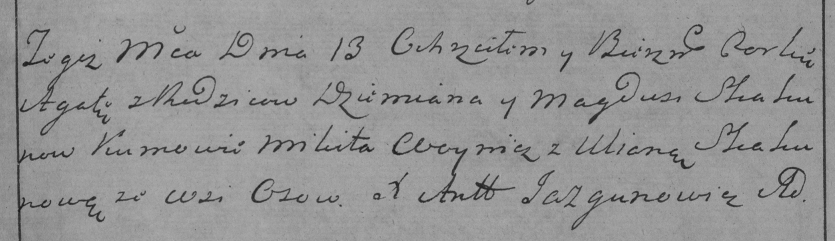 Tegoż Mca Dnia 13 Ochrzciłem y Bierzm Corkę
Agatę z Rodzicow Dziemiana y Magdusi Skaku
now Kumowie Mikita Woynicz z Ulianą Skaku
nową ze wsi Osow. X Antt Jazgunowicz AD.